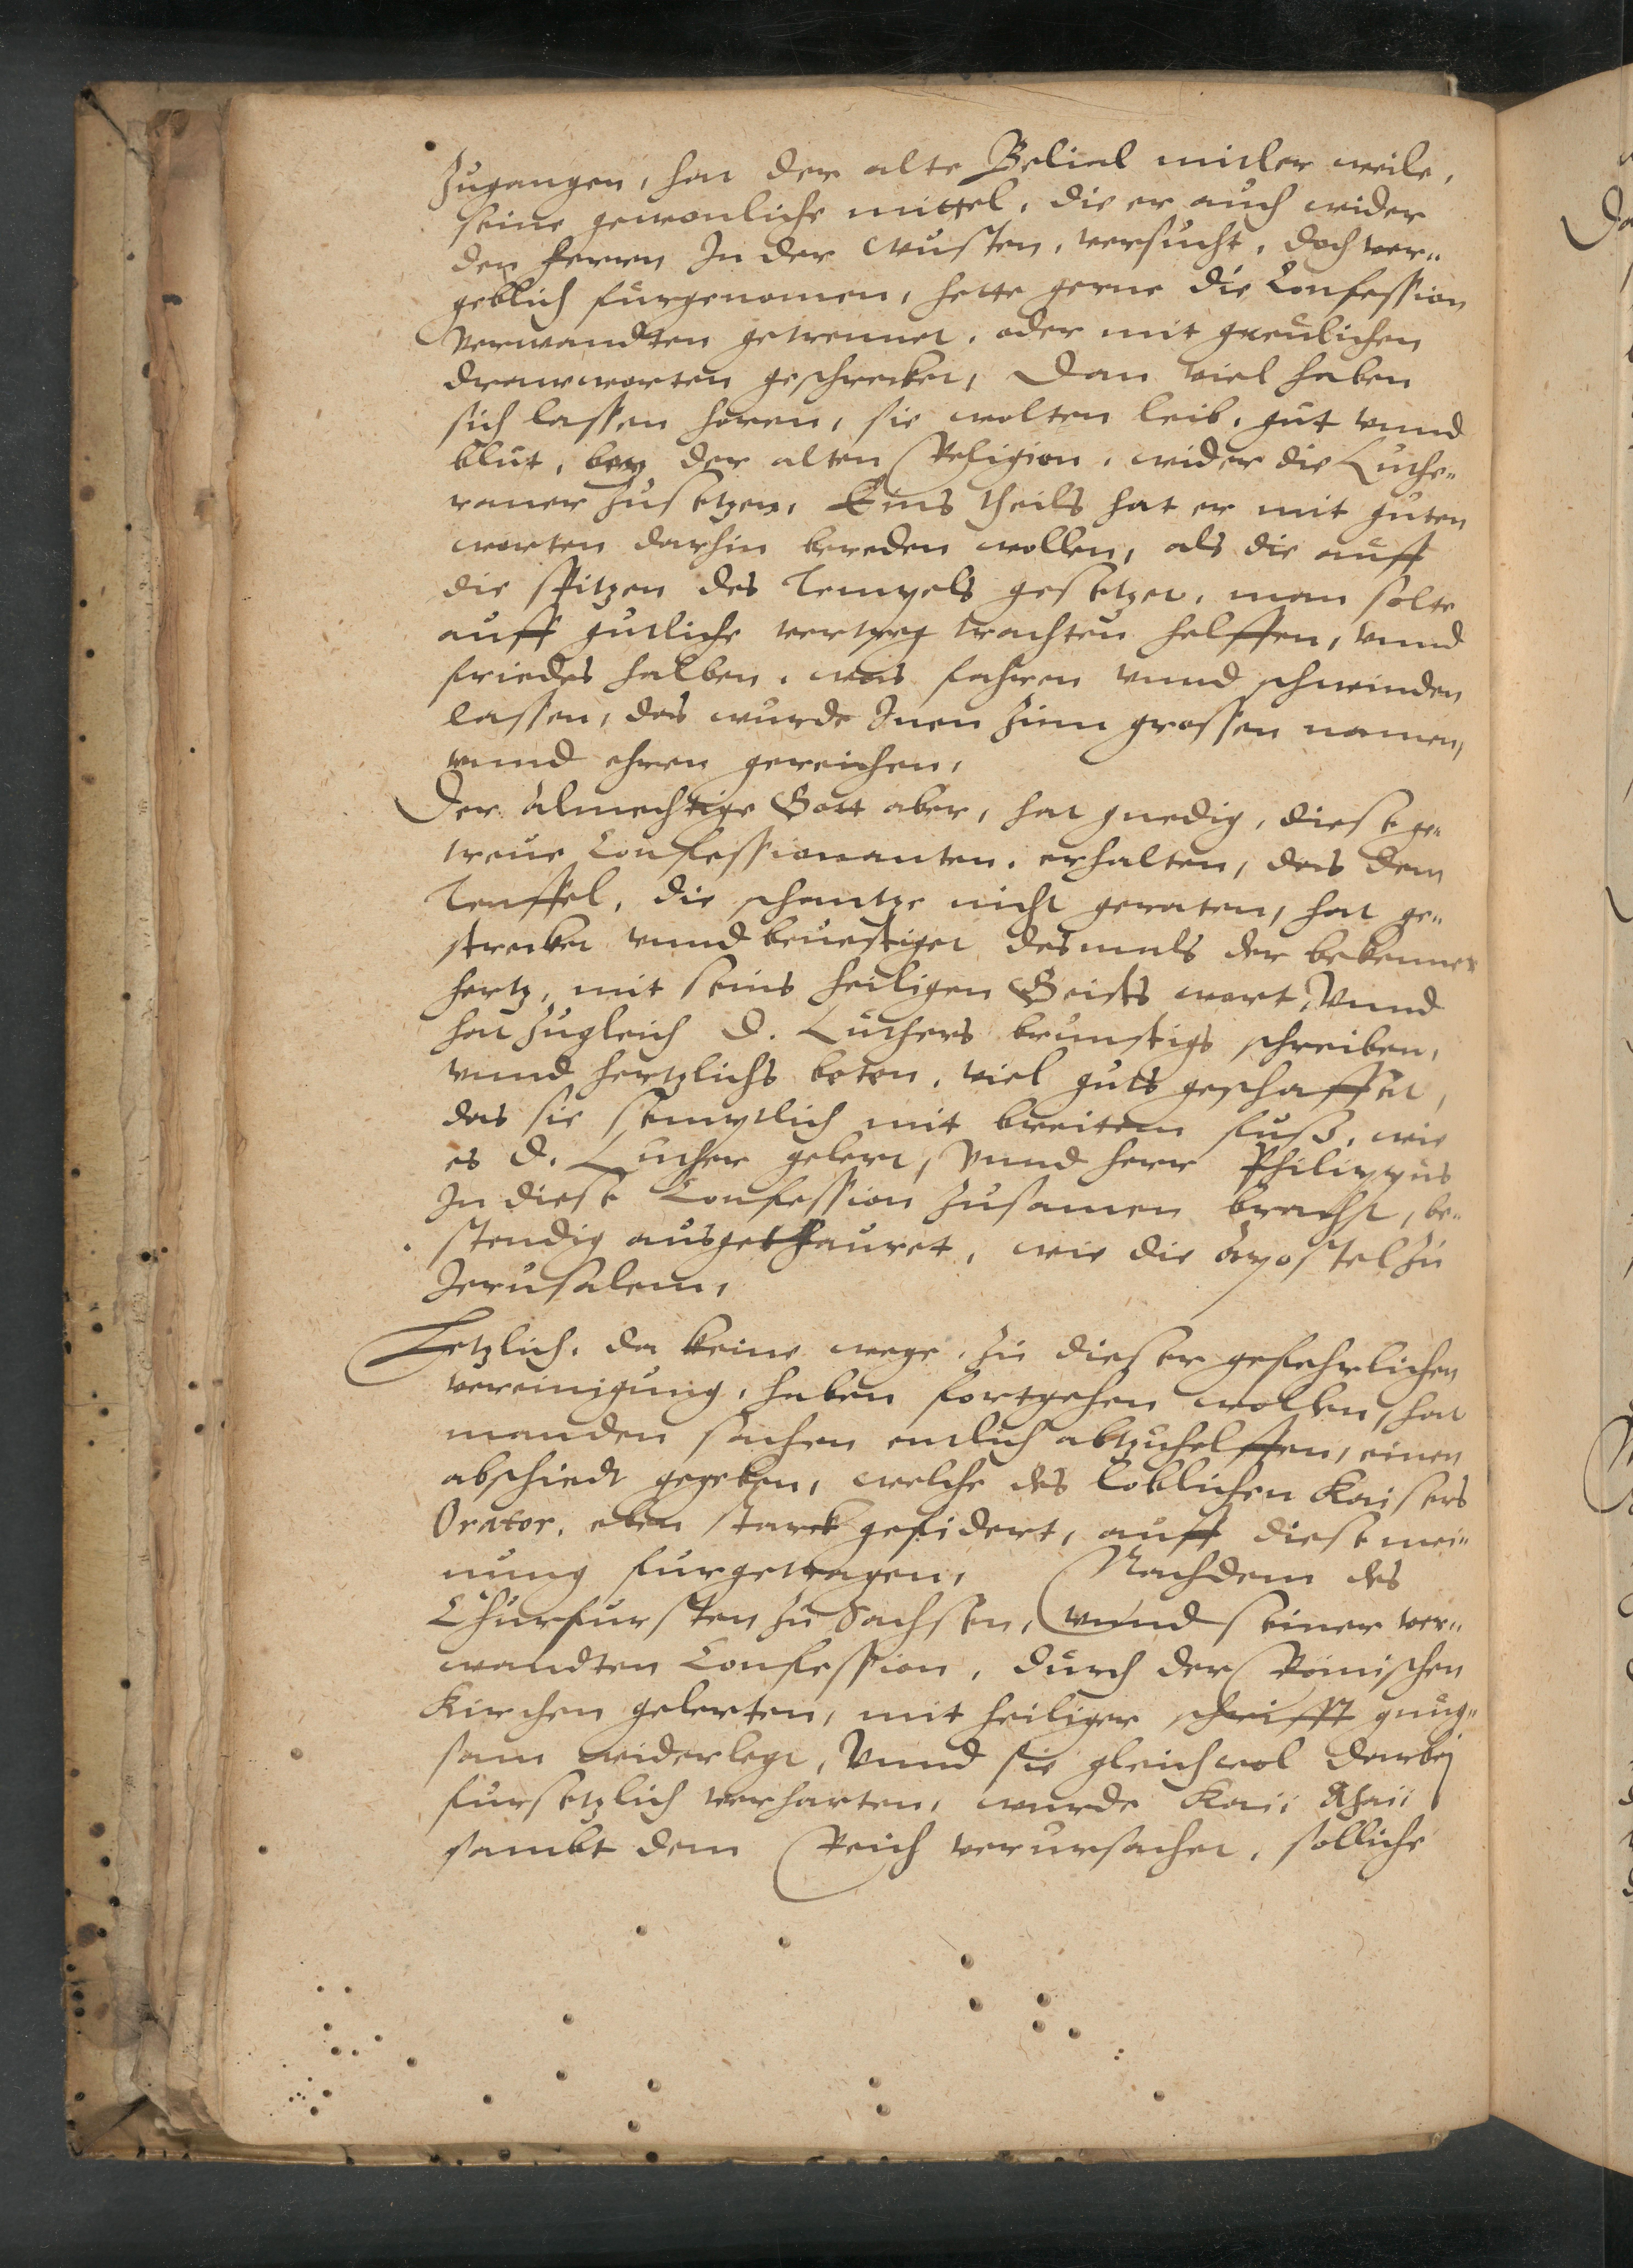 Zugangen, hat der alte Belial mitler weile,
seine gewonliche mittel, die er auch wider
den herren In der wusten, versucht, doch ver„
geblich furgenomen, hette gerne die Confession
verwandten getrennet, oder mit greulichen
drawworten geschrecket, Dan viel haben
sich lassen horen, sie wolten leib, gut vnnd
blut, bey der alten Religion, wider die Luthe„
raner zusetzen, Eins theils hat er mit guten
worten dahin bereden wollen, als die auff
die spitzen des Tempels gesetzet, man solte
auff gutliche vertreg trachten helffen, vnnd
friedes halben, was fahren vnnd schwinden
lassen, das wurde Inen zum grossen namen,
vnnd ehren gereichen,
Der almechtige Gott aber, hat gnedig, diese ge„
treue Confessionanten, erhalten, das dem
Teuffel, die schantze nicht geraten, hat ge„
strecket vnnd beuestiget desmals der bekenner
hertz, mit seins heiligen Geists wort, Vnnd
hat zugleich D. Luthers brunstigs schreiben,
vnnd hertzlichs beten, viel guts geschaffet,
das sie semptlich mit breitem fuß, wie
es D. Luther gelert, Vnnd herr Philippus
In diese Confession zusamen bracht, be„
stendig ausgethauret, wie die Apostel zu
Jerusalem,
Letzlich, da keine wege, zu dieser gefehrlichen
vereinigung, haben fortgehen wollen, hat
man den sachen entlich abzuhelffen, einen
abschiedt gegeben, welche des loblichen Kaisers
Orator, eben starck gefidert, auff diese mei„
nung furgetragen, Nachdem des
Churfursten zu Sachsen, vnnd seiner ver„
wandten Confession, durch der Römischen
Kirchen gelerten, mit heiliger schrifft gnug„
sam widerlegt, Vnnd sie gleichwol darbej
fursetzlich verharten, wurde Kai:
sambt dem Reich verursachet, solliche